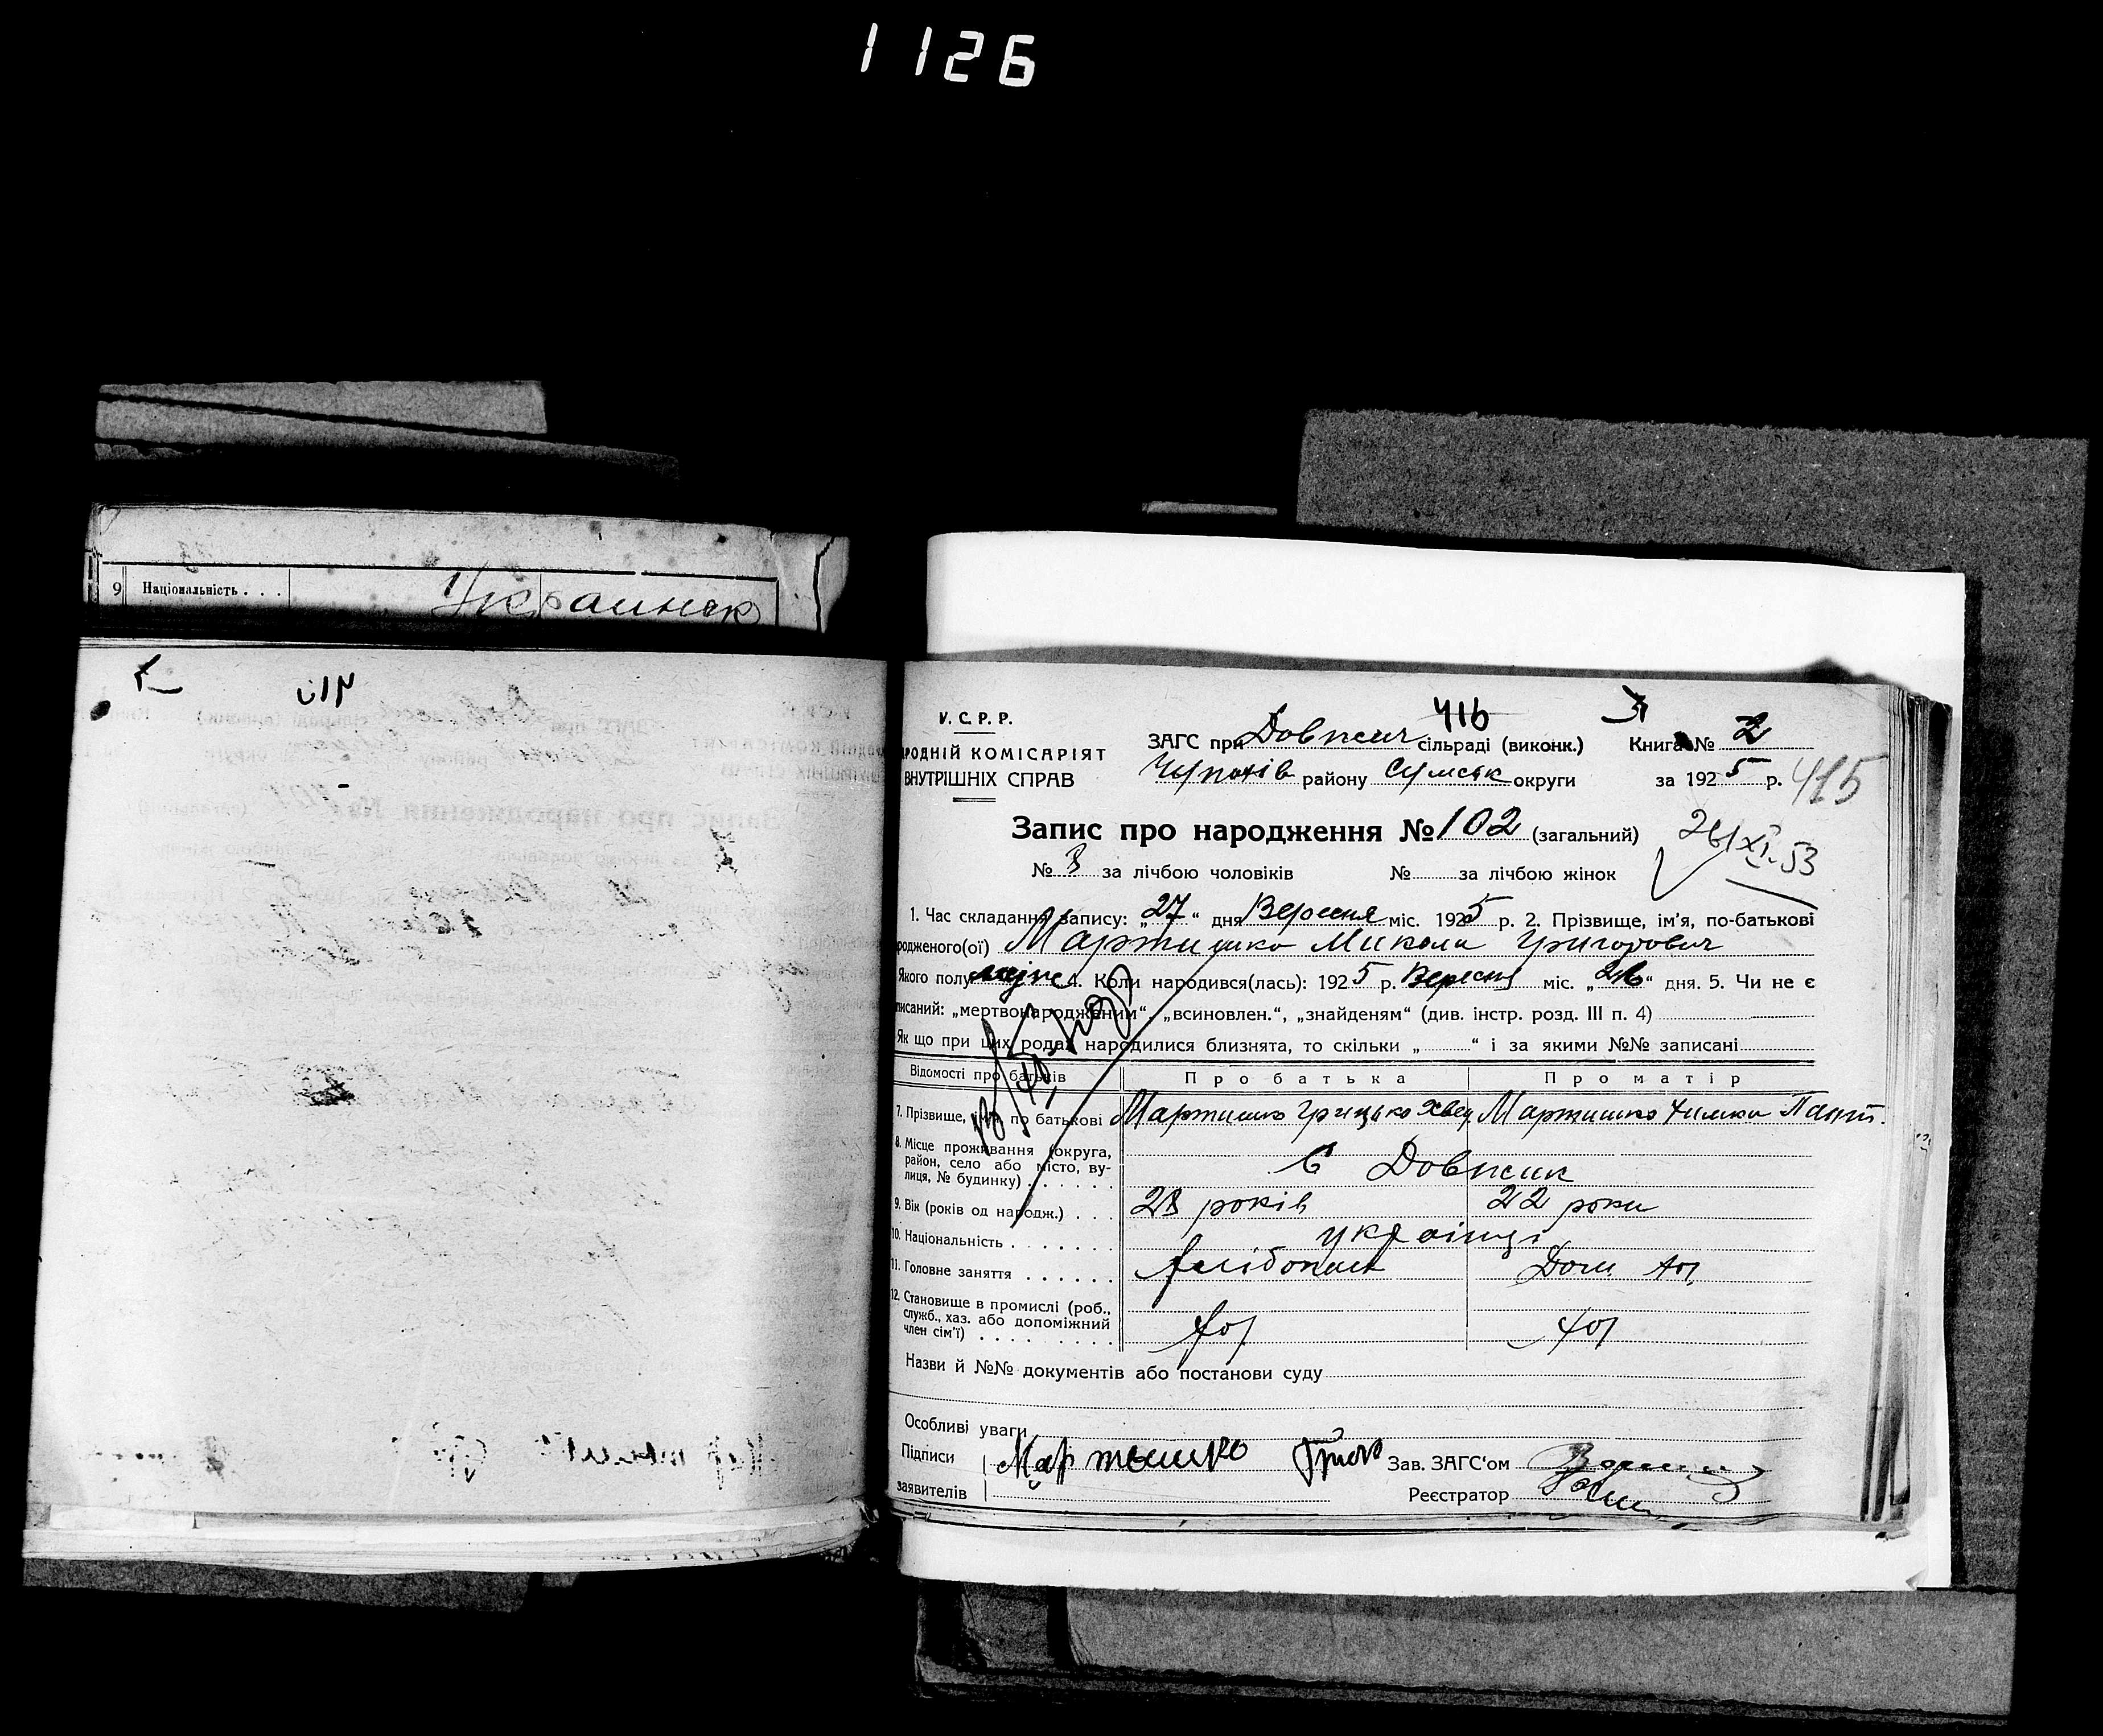 1126
9 Національність . . . Украинск
У. С. Р. Р.
РОДНІЙ КОМІСАРІЯТ
ВНУТРІШНІХ СПРАВ
416
ЗАГС при Довжич сільраді (виконк.) Книга № 2
Чупахів району Сумськ округи за 1925 р. 415
Запис про народження № 102 (загальний)
26/XI-53
№ 8 за лічбою чоловіків № за лічбою жінок
1. Час складання запису: „27“ дня Вересня міс. 1925 р. 2. Прізвище, ім'я, по-батькові
родженого(ої) Мартишко Микола Григорович
Якого полу муж 4. Коли народився(лась): 1925 р. Вересня міс. „26“ дня. 5. Чи не є
писаний: „мертвонародженим“, „всиновлен.“, „знайденям“ (див. інстр. розд. III п. 4)
Як що при цих родах народилися близнята, то скільки „ “ і за якими №№ записані
Відомості про батьків Про батька Про матір
7. Прізвище, ім'я, по батькові Мартишко Грицько Хвед. Мартишко Химка Пант.
8. Місце проживання (округа,
район, село або місто, ву-
лиця, № будинку) . . . . . с Довжик
9. Вік (років од народж.) . . . 28 років 22 роки
10. Національність . . . . . . . українці
11. Головне заняття . . . . . . Хлібопаш Дом.
12. Становище в промислі (роб.,
служб., хаз. або допоміжний
член сім'ї) . . . . . . . . .
Назви й №№ документів або постанови суду
Особливі уваги
Підписи Мартышко Зав. ЗАГС'ом
заявителів Реєстратор